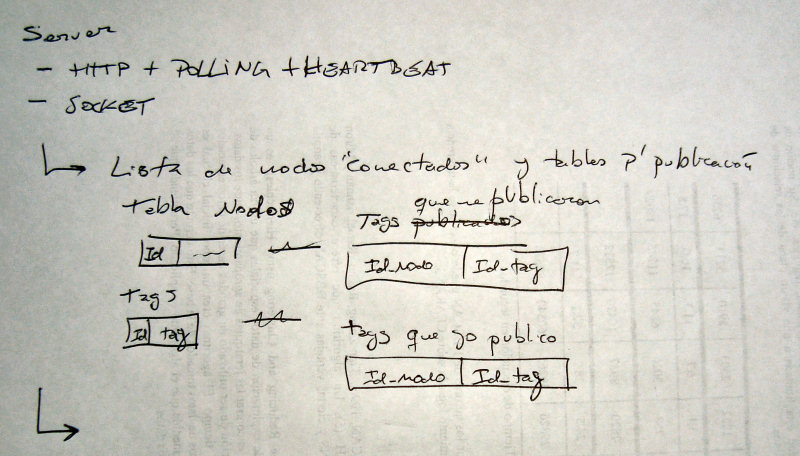 Server
- HTTP + POLLING + HEARTBEAT
- SOCKET
Lista de nodos "conectados" y tablas p' publicación
Tabla Nodos
que me publicaron
Tags publicados
Id
Id_nodo Id_tag
Tags
Id tag
Tags que yo publico
Id_nodo Id_tag